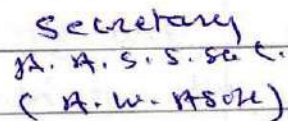 Secretary
A. A. S. S. Sa C.
(A. W. Asole)